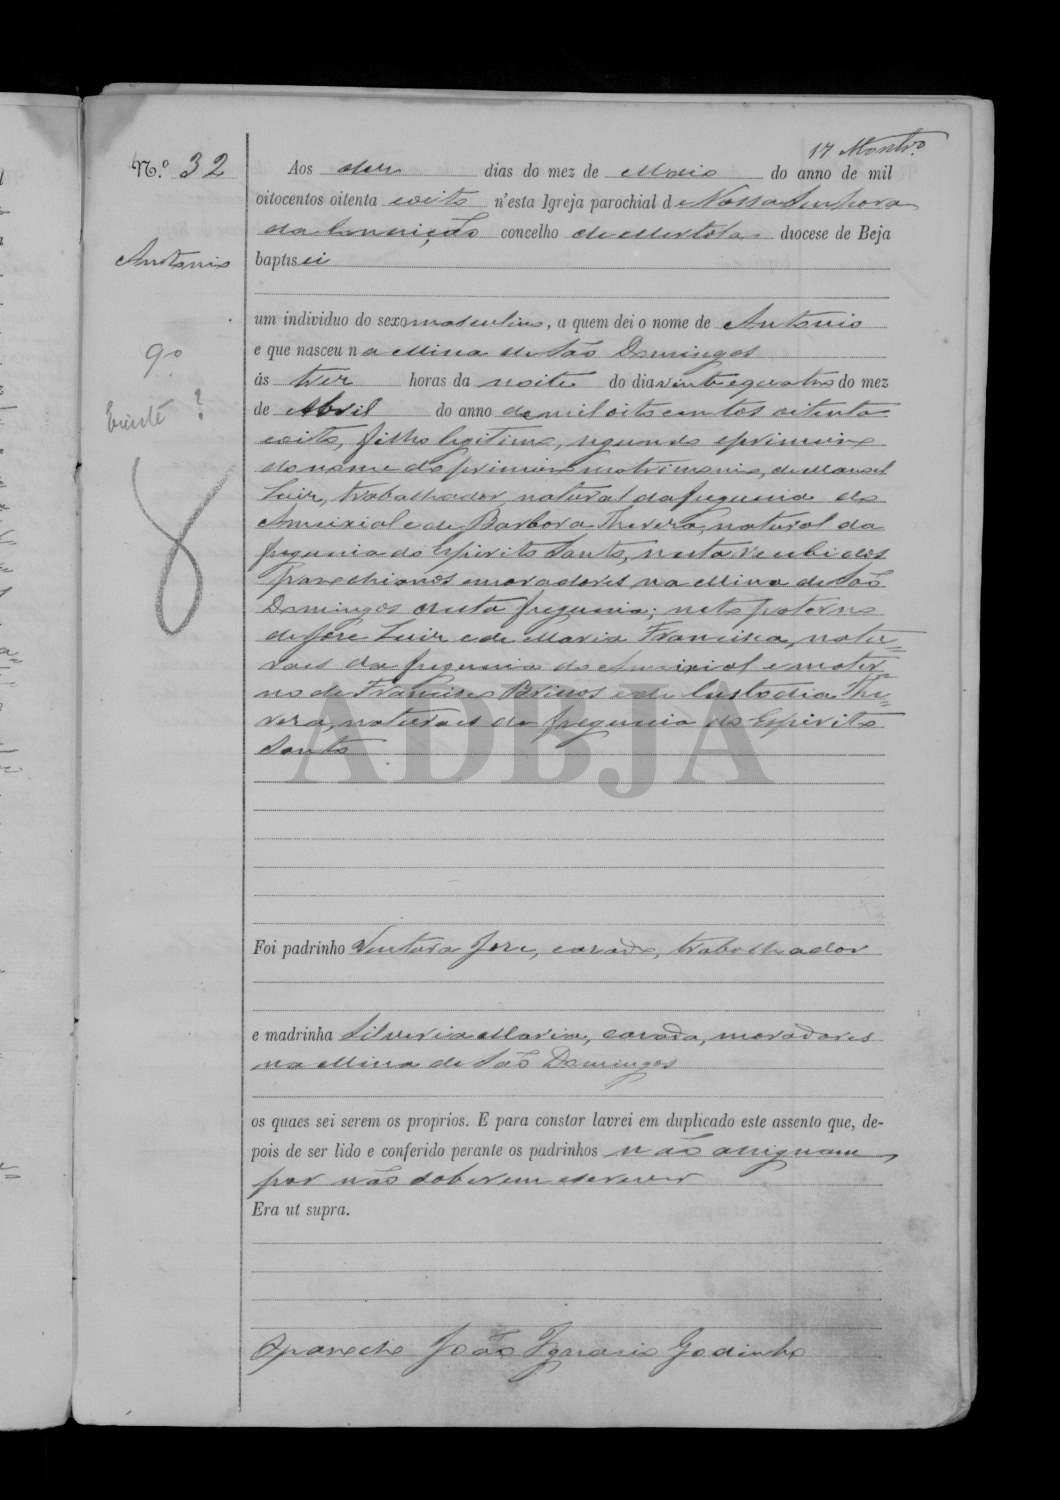 17 Montr.o
N.º 32
Aos dez dias do mez de Maio do anno de mil
oitocentos oitenta e oito n'esta Igreja parochial de Nossa Senhora
da Conceição concelho de Mertola diocese de Beja
Antonio
baptisei
um individuo do sexo masculino, a quem dei o nome de Antonio
9º
e que nasceu na Mina de São Domingos
ás trez horas da noite do dia vinte e quatro do mez
de Abril do anno de mil oitocentos oitenta
?
e oito, filho legitimo, segundo e primeiro
do nome do primeiro matrimonio, de Manoel
Luiz, trabalhador, natural da freguesia do
Ameixial e de Barbora Thereza, natural da
freguesia do Espirito Santo, n'esta recebidos
parochianos e moradores na Mina de São
Domingos desta freguesia; neto paterno
de José Luiz e de Maria Francisca, natu=
raes da freguesia do Ameixial e mater=
no de Francisco Brissos e de Custodia The=
reza, naturaes da freguesia do Espirito
Santo
ADBJA
Foi padrinho Ventura José, casado, trabalhador
e madrinha Silveria Maria, casada, moradores
na Mina de São Domingos
os quaes sei serem os proprios. E para constar lavrei em duplicado este assento que, de-
pois de ser lido e conferido perante os padrinhos não assignam,
por não saberem escrever
Era ut supra.
O parocho João Ignacio Godinho